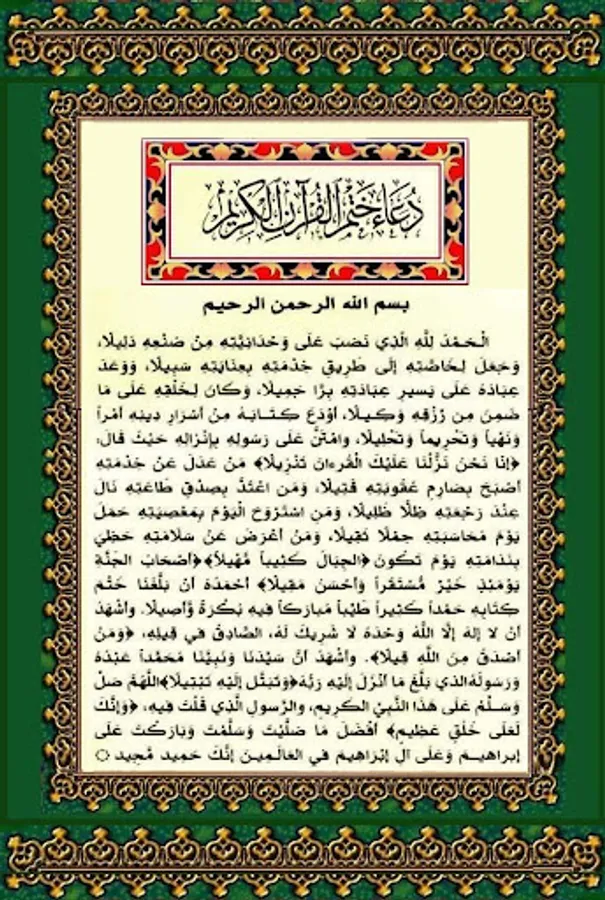 دُعَاءُ خَتْمِ الْقُرْآنِ الْكَرِيْمِ
بسم الله الرحمن الرحيم
الْحَمْدُ لِلَّهِ الَّذِي نَصَبَ عَلَى وَحْدَانِيَّتِهِ مِنْ صُنْعِهِ دَلِيلًا،
وَجَعَلَ لِخَاصَّتِهِ إِلَى طَرِيقِ خِدْمَتِهِ بِعِنَايَتِهِ سَبِيلًا، وَوَعَدَ
عِبَادَهُ عَلَى يَسِيرِ عِبَادَتِهِ بِرًّا جَمِيلًا، وَكَانَ لِخَلْقِهِ عَلَى مَا
ضَمِنَ مِن رِزْقِهِ وَكِيلًا، أَوْدَعَ كِتَابَهُ مِنْ أَسْرَارِ دِينِهِ أَمْراً
وَنَهْياً وَتَحْرِيماً وَتَحْلِيلًا، وَامْتَنَّ عَلَى رَسُولِهِ بِإِنْزَالِهِ حَيْثُ قَالَ:
﴿إِنَّا نَحْنُ نَزَّلْنَا عَلَيْكَ الْقُرْءَانَ تَنْزِيلًا﴾ مَنْ عَدَلَ عَنْ خِدْمَتِهِ
أَصْبَحَ بِصَارِمِ عُقُوبَتِهِ قَتِيلًا، وَمَنِ اعْتَدَّ بِصِدْقِ طَاعَتِهِ نَالَ
عِنْدَ رَجْعَتِهِ ظِلًّا ظَلِيلًا، وَمَنِ اسْتَرْوَحَ الْيَوْمَ بِمَعْصِيَتِهِ حَمَلَ
يَوْمَ مُحَاسَبَتِهِ حِمْلًا ثَقِيلًا، وَمَنْ أَعْرَضَ عَنْ سَلَامَتِهِ حَظِيَ
بِنَدَامَتِهِ يَوْمَ تَكُونُ ﴿الجِبَالُ كَثِيباً مَّهِيلاً﴾ ﴿أَصْحَابُ الجَنَّةِ
يَوْمَئِذٍ خَيْرٌ مُّسْتَقَراً وَأَحْسَنُ مَقِيلًا﴾ أَحْمَدُهُ أَنْ بَلَّغَنَا خَتْمَ
كِتَابِهِ حَمْداً كَثِيراً طَيِّباً مُبَارَكاً فِيهِ بُكْرَةً وَّأَصِيلًا. وَأَشْهَدُ
أَنْ لَا إِلَهَ إِلَّا اللَّهُ وَحْدَهُ لَا شَرِيكَ لَهُ، الصَّادِقُ فِي قِيلِهِ، ﴿وَمَنْ
أَصْدَقُ مِنَ اللَّهِ قِيلًا﴾. وَأَشْهَدُ أَنَّ سَيِّدَنَا وَنَبِيَّنَا مُحَمَّداً عَبْدُهُ
وَرَسُولُهُ الَّذِي بَلَّغَ مَا أُنْزِلَ إِلَيْهِ رَبُّهُ ﴿وَتَبَتَّلْ إِلَيْهِ تَبْتِيلًا﴾ اللَّهُمَّ صَلِّ
وَسَلِّمْ عَلَى هَذَا النَّبِيِّ الكَرِيمِ، وَالرَّسولِ الَّذِي قُلْتَ فِيهِ، ﴿وَإِنَّكَ
لَعَلَى خُلُقٍ عَظِيمٍ﴾ أَفْضَلَ مَا صَلَّيْتَ وَسَلَّمْتَ وَبَارَكْتَ عَلَى
إِبراهيمَ وَعَلَى آلِ إِبْرَاهِيمَ فِي العَالَمِينَ إِنَّكَ حَمِيدٌ مَّجِيد